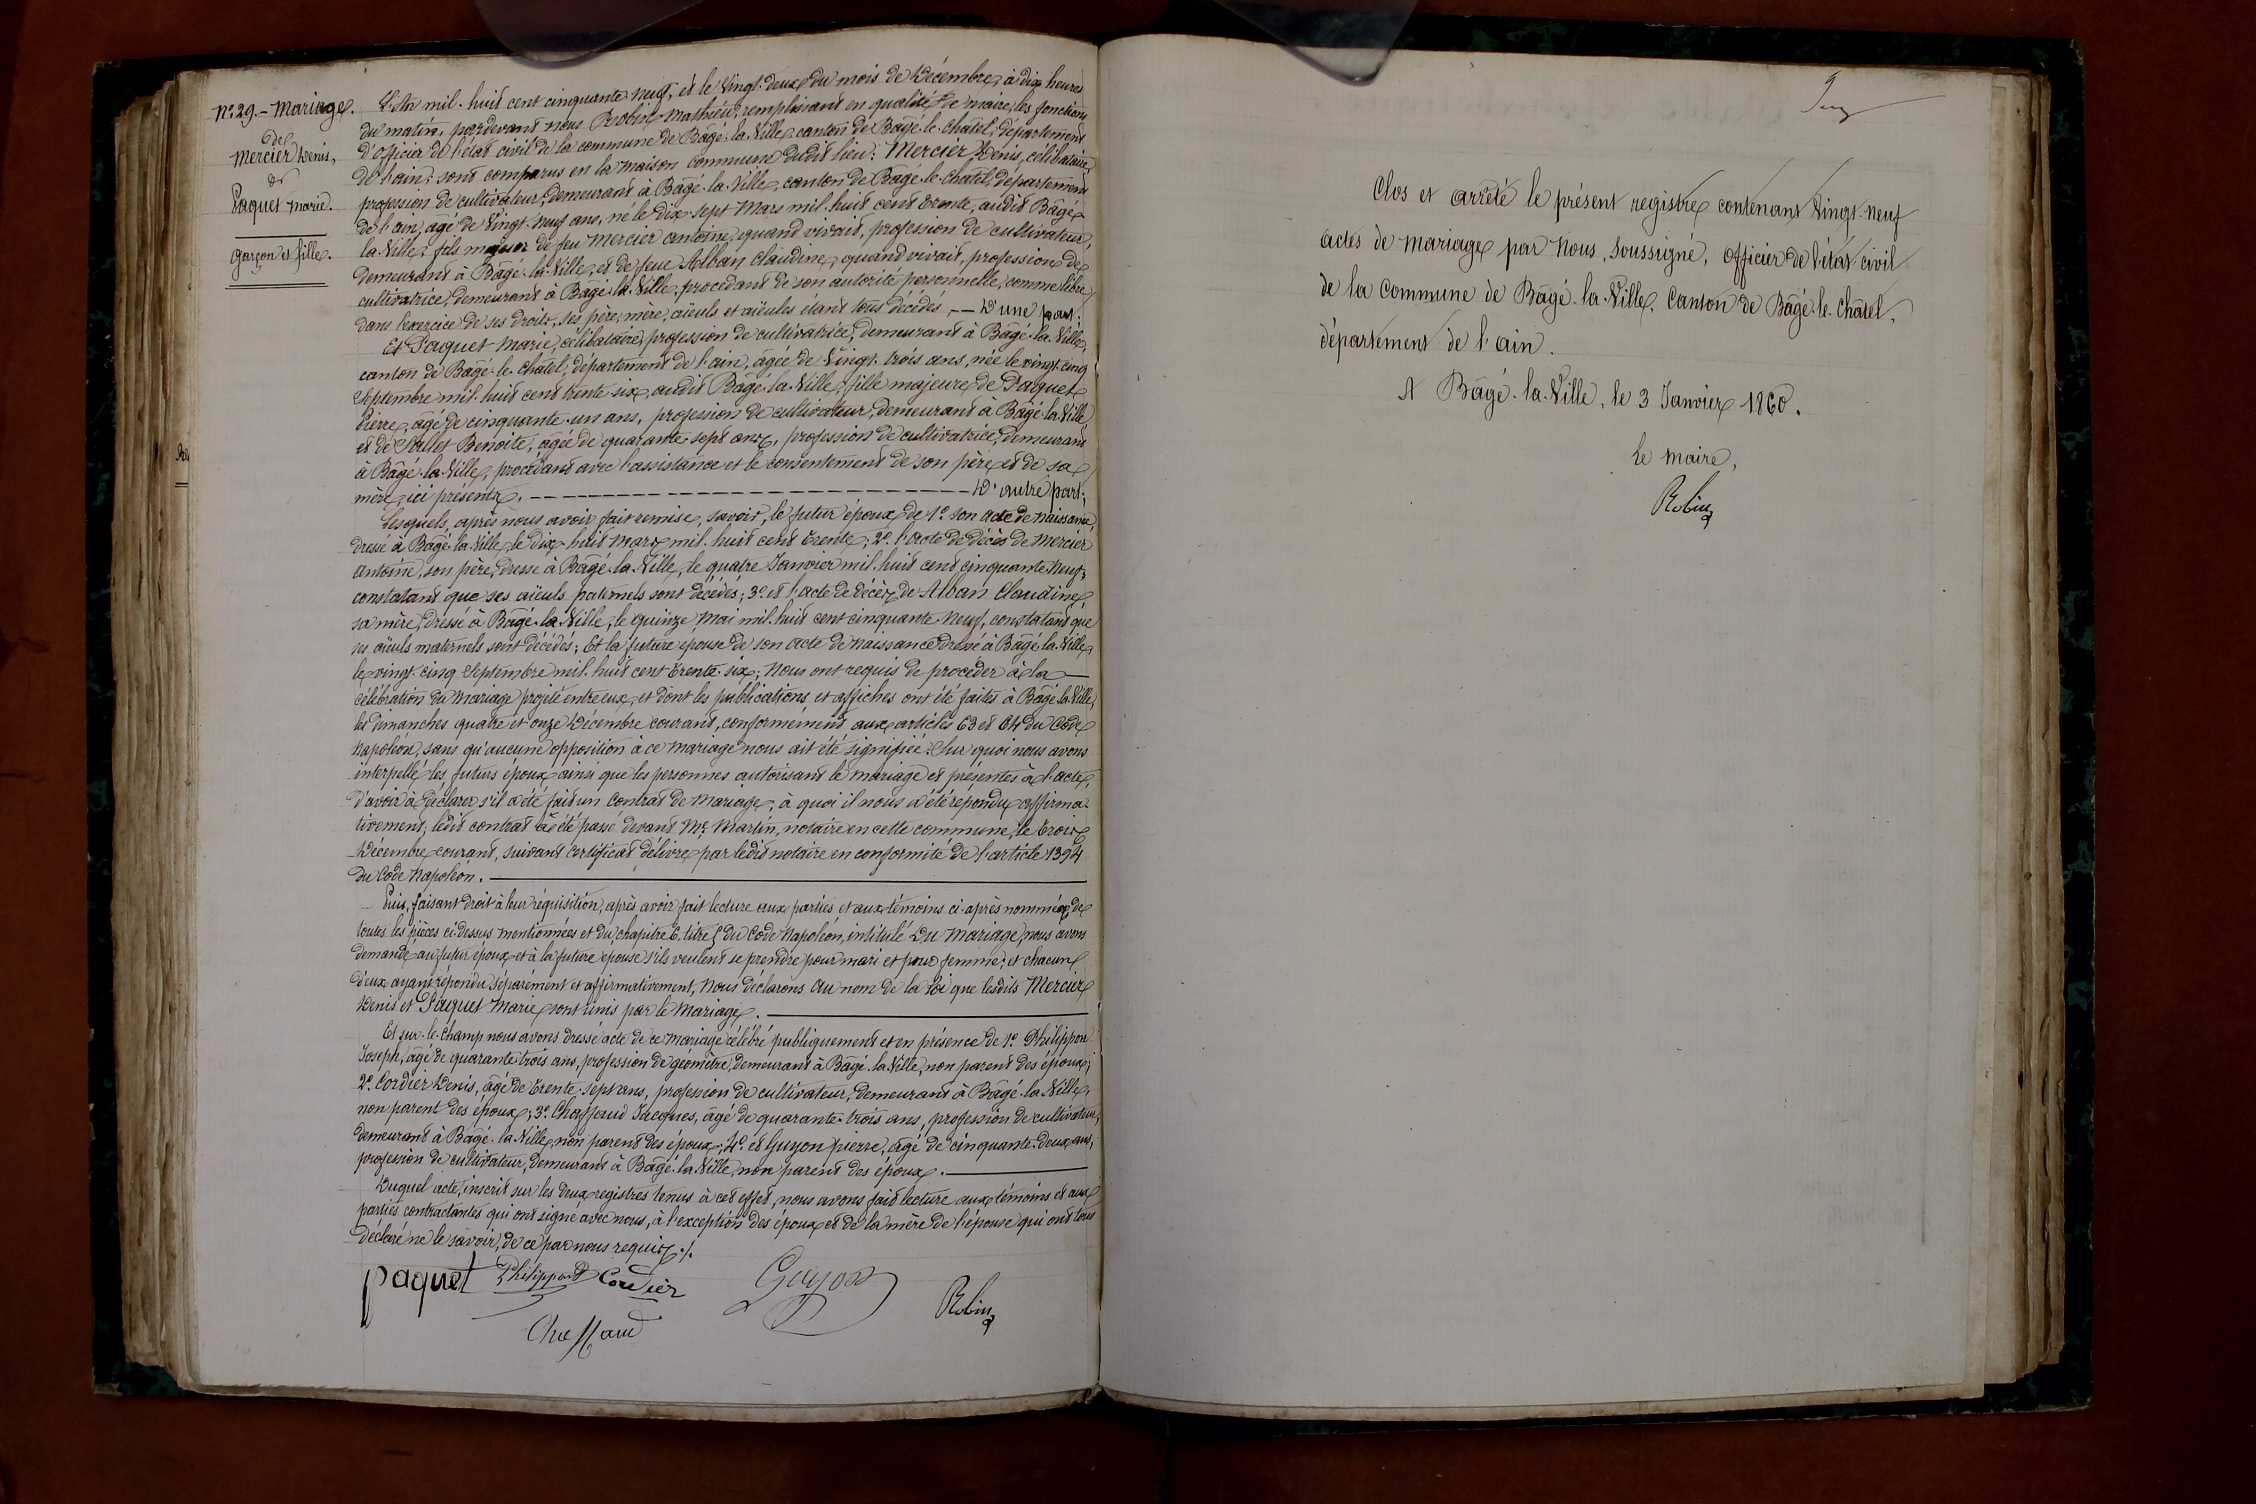 N° 29. - Mariage.
de
Mercier Denis,
&
Paquet Marie.
Garçon et fille.
L'An mil-huit cent cinquante-neuf, et le Vingt-deux du mois de Décembre, à dix heures
du matin, pardevant nous Robin Mathieu, remplissant en qualité de maire, les fonctions
d'officier de l'état civil de la commune de Bâgé-la-Ville, canton de Bâgé-le-Chatel, département
de l'ain; sont comparus en la maison commune dudit lieu: Mercier Denis, célibataire,
profession de cultivateur, demeurant à Bâgé-la-Ville, canton de Bâgé-le-Chatel, département
de l'ain, âgé de Vingt-neuf ans, né le dix-sept Mars mil-huit cent trente, audit Bâgé-
la-Ville, fils majeur de feu Mercier antoine, quand vivait, profession de cultivateur,
demeurant à Bâgé-la-Ville, et de feue Alban Claudine, quand vivait, profession de
cultivatrice, demeurant à Bâgé-la-Ville, procédant de son autorité personnelle, comme libre
dans l'exercice de ses droits, ses père, mère, aïeuls et aïeules étant tous décédés, — D'une part;
Et Paquet Marie, célibataire, profession de cultivatrice, demeurant à Bâgé-la-Ville,
canton de Bâgé-le-Chatel, département de l'ain, âgée de Vingt-trois ans, née le vingt-cinq
Septembre mil-huit cent trente-six, audit Bâgé-la-Ville, fille majeure de Paquet
Pierre, âgé de cinquante-un ans, profession de cultivateur, demeurant à Bâgé-la-Ville
et de Benoite, âgée de quarante-sept ans, profession de cultivatrice, demeurant
à Bâgé-la-Ville, procédant avec l'assistance et le consentement de son père et de sa
mère, ici présents. — D'autre part;
Lesquels, après nous avoir fait remise, savoir, le futur époux de 1° son acte de naissance,
dressé à Bâgé-la-Ville, le dix-huit Mars mil-huit cent trente; 2° l'acte de décès de Mercier
antoine, son père, dressé à Bâgé-la-Ville, le quatre Janvier mil-huit cent cinquante-neuf,
constatant que ses aïeuls paternels sont décédés; 3° et l'acte de décès de Alban Claudine,
sa mère, dressé à Bâgé-la-Ville, le quinze Mai mil-huit cent cinquante-neuf, constatant que
ses aïeuls maternels sont décédés; Et la future épouse de son acte de naissance dressé à Bâgé-la-Ville,
le vingt-cinq Septembre mil-huit cent trente-six; Nous ont requis de procéder à la
célébration du mariage projeté entre eux, et dont les publications et affiches ont été faites à Bâgé-la-Ville,
les dimanches quatre et onze Décembre courant, conformément aux articles 63 et 64 du Code
Napoléon, sans qu'aucune opposition à ce mariage nous ait été signifiée. Sur quoi nous avons
interpellé les futurs époux ainsi que les personnes autorisant le mariage et présentes à l'acte,
d'avoir à déclarer s'il a été fait un contrat de mariage, à quoi il nous a été répondu affirma-
tivement; ledit contrat a été passé devant Me Martin, notaire en cette commune, le trois
Décembre courant, suivant certificat délivré par ledit notaire en conformité de l'article 1394
du Code Napoléon.
Puis, faisant droit à leur réquisition, après avoir fait lecture aux parties et aux témoins ci-après nommés, de
toutes les pièces ci-dessus mentionnées et du chapitre 6. titre 5 du Code Napoléon, intitulé Du Mariage, nous avons
demandé au futur époux et à la future épouse s'ils veulent se prendre pour mari et pour femme; et chacun
d'eux ayant répondu séparément et affirmativement, Nous déclarons au nom de la loi que lesdits Mercier
Denis et Paquet Marie sont unis par le Mariage.
Et sur-le-champ nous avons dressé acte de ce mariage célébré publiquement et en présence de 1° Philippon
Joseph, âgé de quarante-trois ans, profession de géomètre, demeurant à Bâgé-la-Ville, non parent des époux;
2° Cordier Denis, âgé de trente-sept ans, profession de cultivateur, demeurant à Bâgé-la-Ville,
non parent des époux; 3° Chaffaud Jacques, âgé de quarante-trois ans, profession de cultivateur,
demeurant à Bâgé-la-Ville, non parent des époux; 4° et Guyon pierre, âgé de cinquante-deux ans,
profession de cultivateur, demeurant à Bâgé-la-Ville, non parent des époux.
Duquel acte, inscrit sur les deux registres tenus à cet effet, nous avons fait lecture aux témoins et aux
parties contractantes qui ont signé avec nous, à l'exception des époux et de la mère de l'épouse qui ont tous
déclaré ne le savoir, de ce par nous requis ./.
paquet Philippon Cordier Guyon Robin
Chaffaud
Clos et arrêté le présent registre contenant Vingt-neuf
actes de mariage par Nous, soussigné, officier de l'état civil
de la Commune de Bâgé-la-Ville, Canton de Bâgé-le-Châtel,
département de l'ain.
A Bâgé-la-Ville, le 3 Janvier 1860.
Le Maire,
Robin